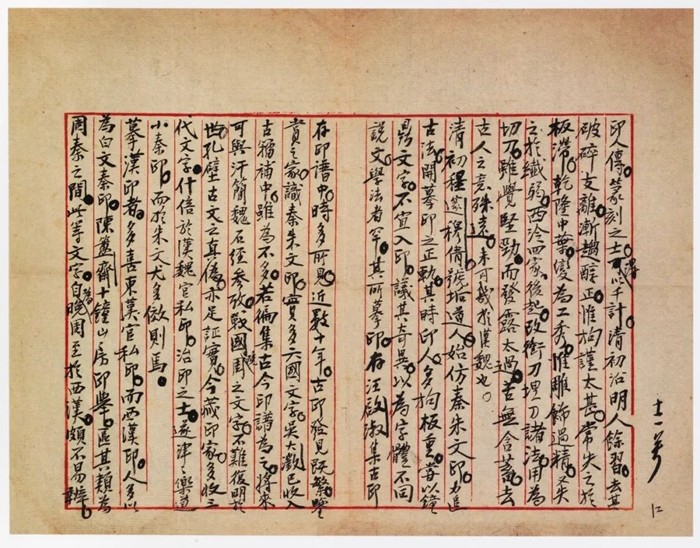 印人傳。篆刻之士。得以千計。清初沿明人餘習。去其
破碎支離。漸趨醇正。惟拘謹太甚。常失之於
板滯。乾隆中葉。變為工秀。惟雕飾過精。又失
之於纖弱。西泠四家後起。改衝刀埋刀諸法。用為
切刀。雖覺堅勁。而發露太過。苦無含蓄。去
古人之意殊遠。未可幾於漢魏也。
清初程邃穆倩號垢道人。始仿秦朱文印。力追
古法。開摹印之正軌。其時印人多拘板重。每以鐘
鼎文字。不宜入印。議其奇異。以為字體不同
說文。學法者罕。其所摹印。存汪啟淑集古印
存印譜中。時多所見。近數十年。古印發見既繁。鑒
賞之家。識秦朱文印。實多六國文字。吳澂已收入
古籀補中。雖為不多。若徧集古今印譜為之。將來
可與汗簡魏石經參攷。戰國時之文字。不難復明於
世。孔壁古文之真僞。亦足証實。今藏印家多收三
代文字。什倍於漢魏官私印。治印之士。遂津津樂道
小秦印。而於朱文尤多倣則焉。
摹漢印者。多喜東漢官私印。而西漢印人多以
為白文秦印。陳簠齋十鐘山房印舉。區其類為
周秦之間。此等文字。自晚周至於西漢。頗不易辨。
十一号
仁